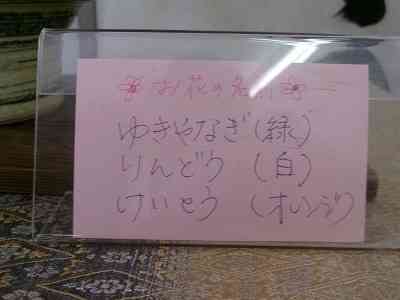 お花の名前
ゆきやなぎ(緑)
りんどう (白)
けいとう (オレンジ)